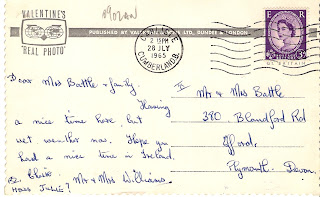 Moran
VALENTINE'S
"REAL PHOTO"
PUBLISHED BY VALENTINE & SONS, LTD., DUNDEE & LONDON
2 15PM
28 JLY
1965
CUMBERLAND
E R
Dear Mrs Battle & family
Having
a nice time here, but
wet weather now. Hope you
had a nice time in Ireland.
Cheerio
Hows Julie? Mr & Mrs Williams
Mr & Mrs Battle
380 Blandford Rd
Efford,
Plymouth, Devon.